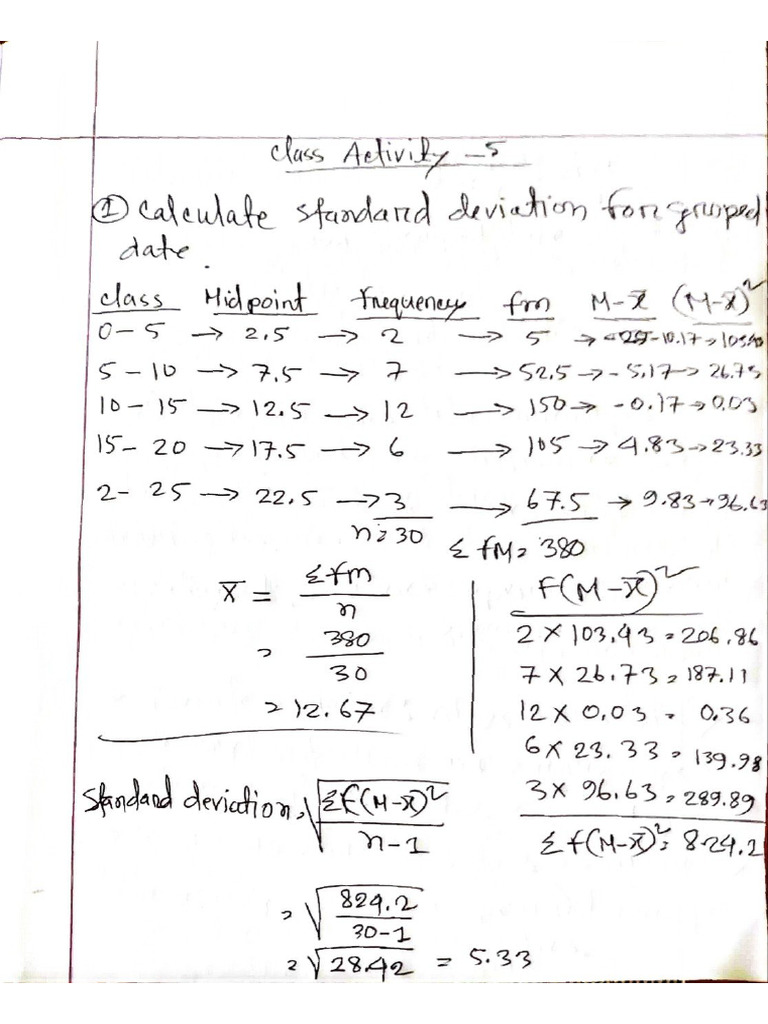 Class Activity -5
① Calculate standard deviation for grouped
date.
class Midpoint frequency fm M-x̄ (M-x̄)²
0-5 → 2.5 → 2 → 5 → -10.17 →
5-10 → 7.5 → 7 → 52.5 → -5.17 → 26.73
10-15 → 12.5 → 12 → 150 → -0.17 → 0.03
15-20 → 17.5 → 6 → 105 → 4.83 → 23.33
2-25 → 22.5 → 3 → 67.5 → 9.83 → 96.63
n = 30 Σfm = 380
x̄ = Σfm / n
= 380 / 30
= 12.67
F(M-x̄)²
2 × 103.43 = 206.86
7 × 26.73 = 187.11
12 × 0.03 = 0.36
6 × 23.33 = 139.98
3 × 96.63 = 289.89
Σf(M-x̄)² = 824.2
Standard deviation = √(Σf(M-x̄)² / n-1)
= √(824.2 / 30-1)
= √28.42 = 5.33